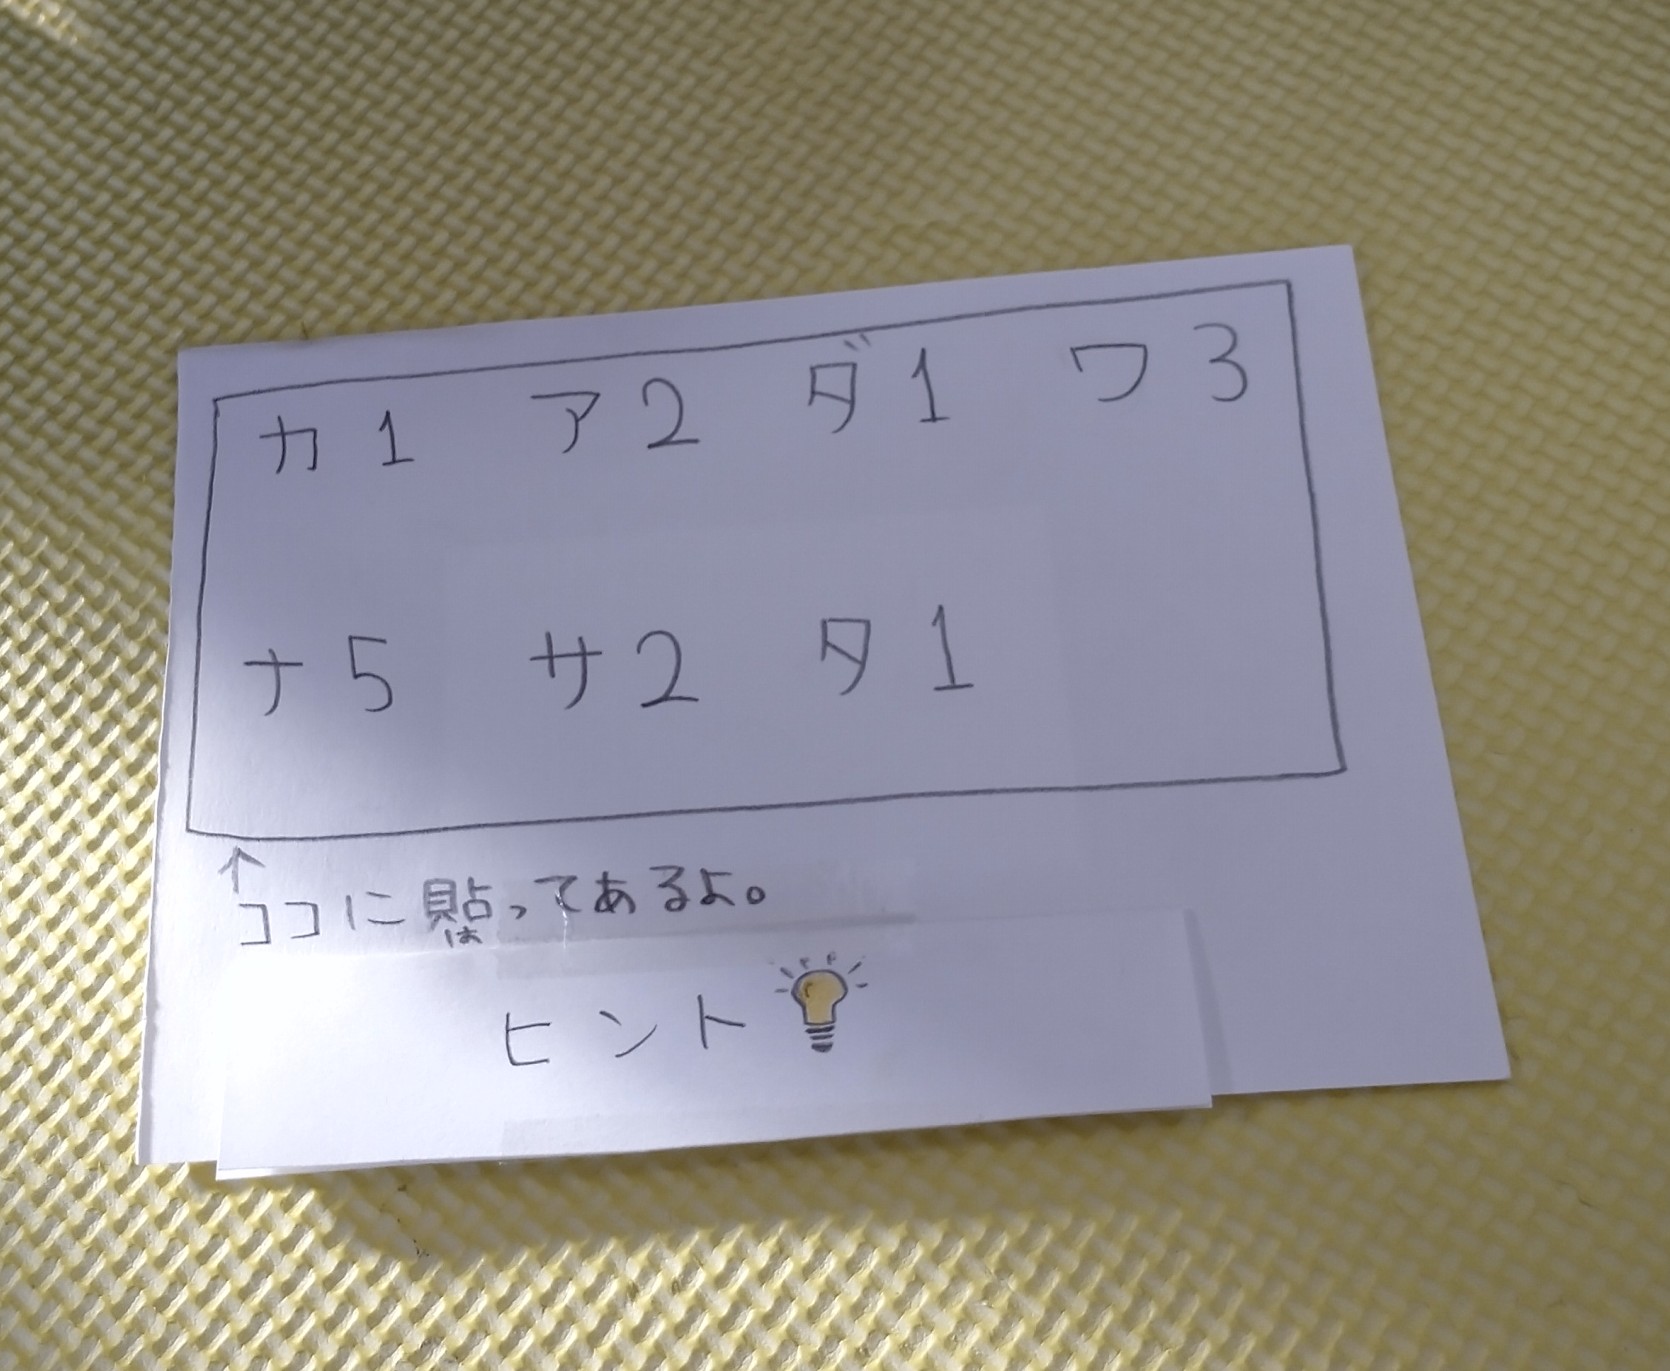 カ1 ア2 ダ1 ワ3
ナ5 サ2 タ1
↑
ココに貼ってあるよ。
は
ヒント